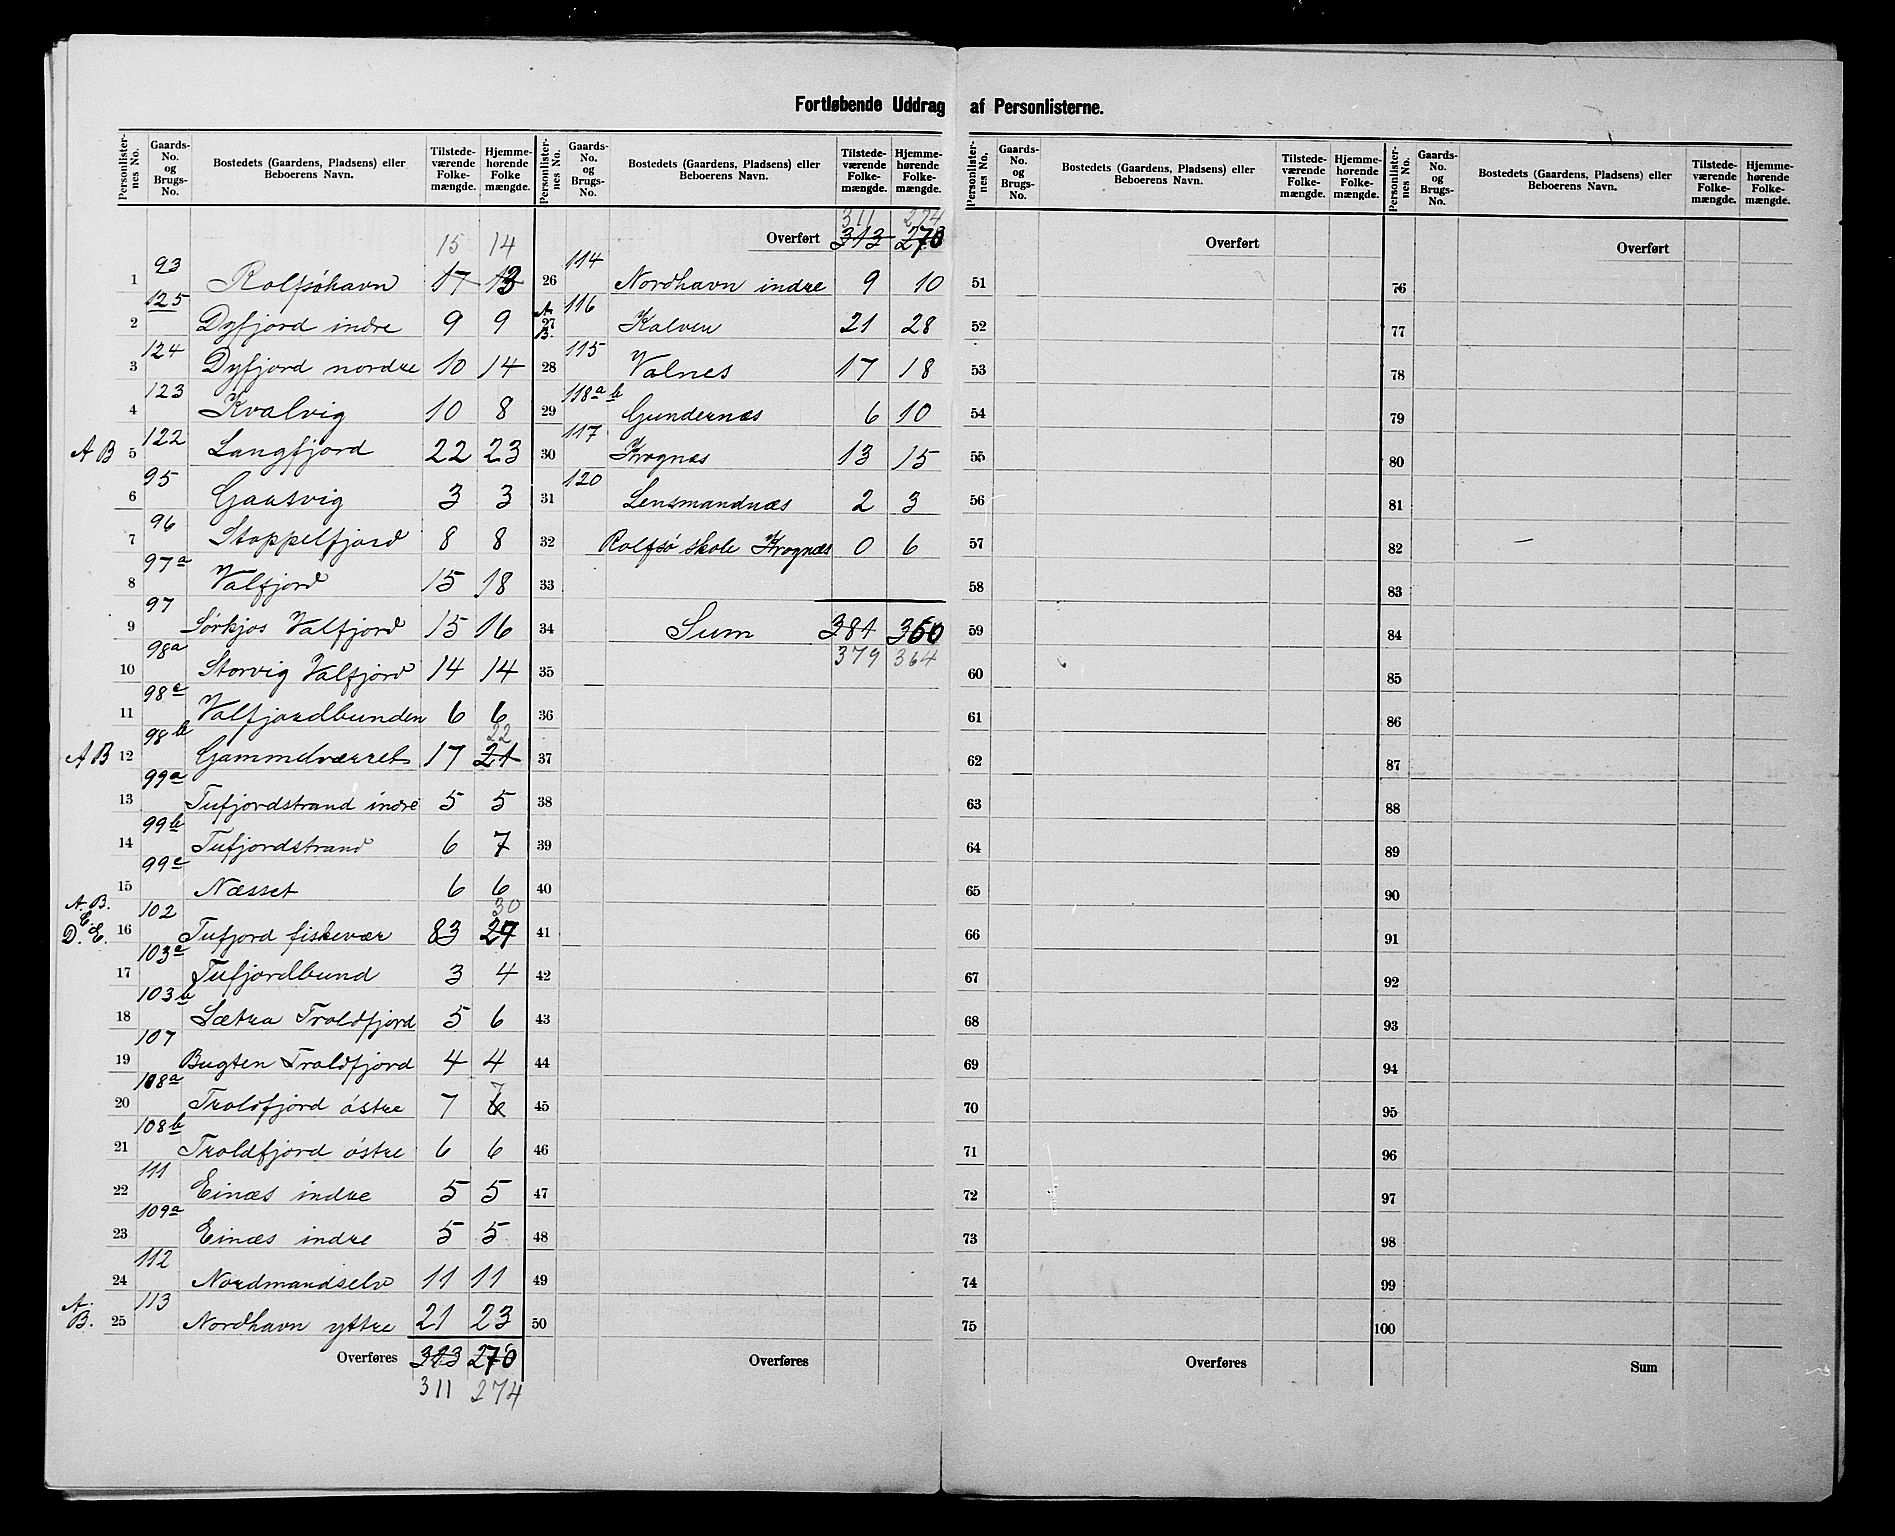 Fortløbende Uddrag af Personlisterne.
Personlister-nes No. Gaards-No. og Brugs-No. Bostedets (Gaardens, Pladsens) eller Beboerens Navn. Tilstede-værende Folke-mængde. Hjemme-hørende Folke mængde.
15 14
1 93 Rolfsöhavn 17 13
2 125 Dyfjord indre 9 9
3 124 Dyfjord nordre 10 14
4 123 Kvalvig 10 8
A B 5 122 Langfjord 22 23
6 95 Gaasvig 3 3
7 96 Stoppelfjord 8 8
8 97a Valfjord 15 18
9 97 Sørkjos Valfjord 15 16
10 98a Storvig Valfjord 14 14
11 98c Valfjordbunden 6 6
22
A B 12 98b Gammelværret 17 21
13 99a Tufjordstrand indre 5 5
14 99b Tufjordstrand 6 7
15 99c Næsset 6 6
30
A. B. C. D. E. 16 102 Tufjord fiskevær 83 27
17 103a Tufjordbund 3 4
18 103b Sætra Troldfjord 5 6
19 107 Bugten Troldfjord 4 4
7
20 108a Troldfjord östre 7 6
21 108b Troldfjord östre 6 6
22 111 Einæs indre 5 5
23 109a Einæs indre 5 5
24 112 Nordmandselv 11 11
A. B. 25 113 Nordhavn yttre 21 23
Overføres 313 270
311 274
Personlister-nes No. Gaards-No. og Brugs-No. Bostedets (Gaardens, Pladsens) eller Beboerens Navn. Tilstede-værende Folke-mængde. Hjemme-hørende Folke-mængde.
311 274
Overført 313 270
26 114 Nordhavn indre 9 10
A. B. 27 116 Kalven 21 28
28 115 Valnes 17 18
29 118a b Gundernæs 6 10
30 117 Krognæs 13 15
31 120 Lensmandnæs 2 3
32 Rolfsö skole Krognæs 0 6
33
34 Sum 381 360
379 364
35
36
37
38
39
40
41
42
43
44
45
46
47
48
49
50
Overføres
Personlister-nes No. Gaards-No. og Brugs-No. Bostedets (Gaardens, Pladsens) eller Beboerens Navn. Tilstede-værende Folke-mængde. Hjemme-hørende Folke-mængde.
Overført
51
52
53
54
55
56
57
58
59
60
61
62
63
64
65
66
67
68
69
70
71
72
73
74
75
Overføres
Personlister-nes No. Gaards-No. og Brugs-No. Bostedets (Gaardens, Pladsens) eller Beboerens Navn. Tilstede-værende Folke-mængde. Hjemme-hørende Folke-mængde.
Overført
76
77
78
79
80
81
82
83
84
85
86
87
88
89
90
91
92
93
94
95
96
97
98
99
100
Sum